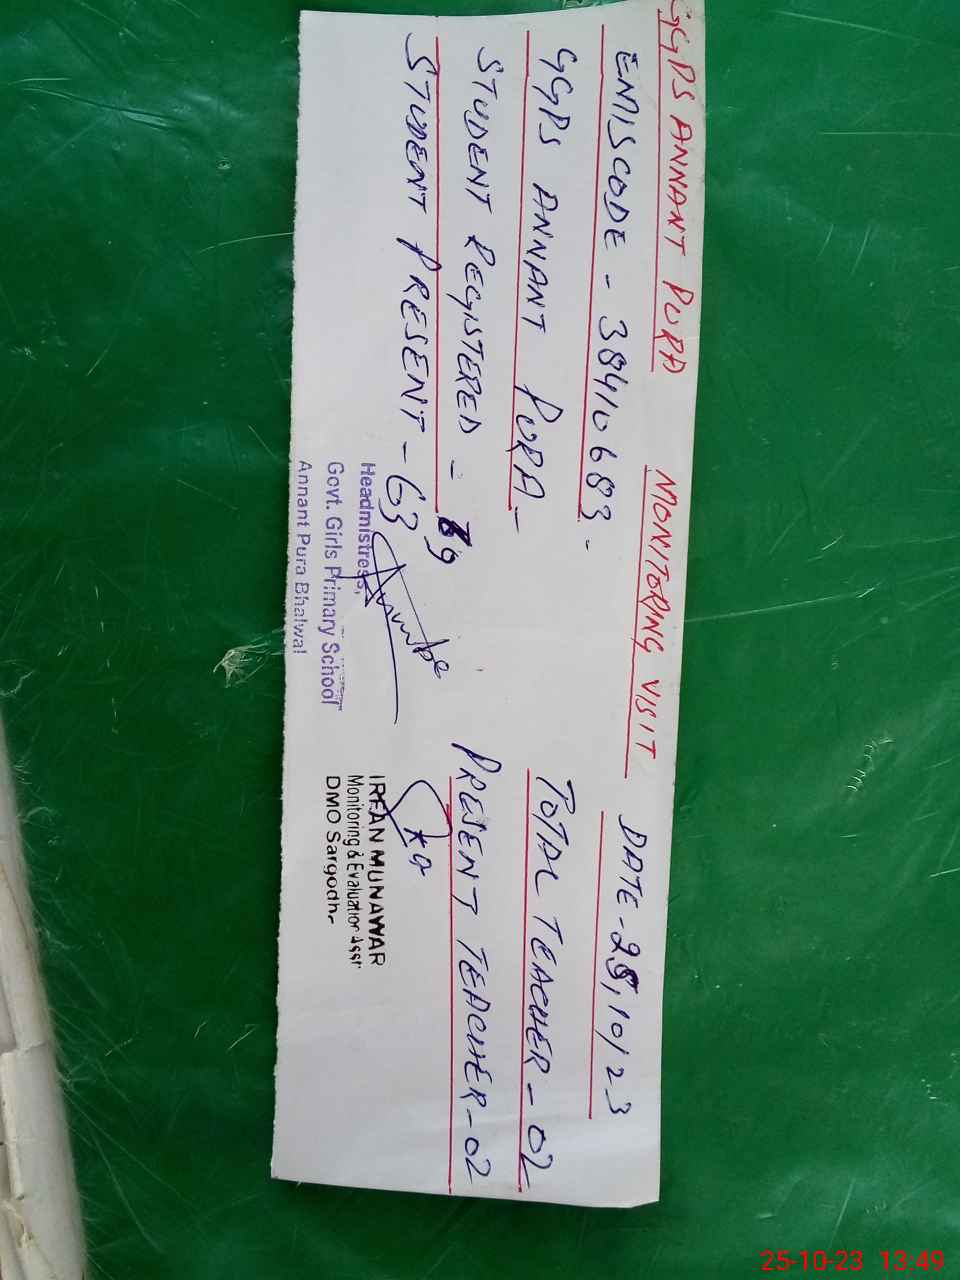 GGPS ANNANT PURA MONITORING VISIT DATE - 25,10/23
EMISCODE - 38410683 -
GGPS ANNANT PURA - TOTAL TEACHER - 02
STUDENT REGISTERED - 69 PRESENT TEACHER - 02
STUDENT PRESENT - 63
Headmistress,
Govt. Girls Primary School
Annant Pura Bhalwal
IRFAN MUNAWAR
Monitoring & Evaluation Asst
DMO Sargodh
25-10-23 13:49